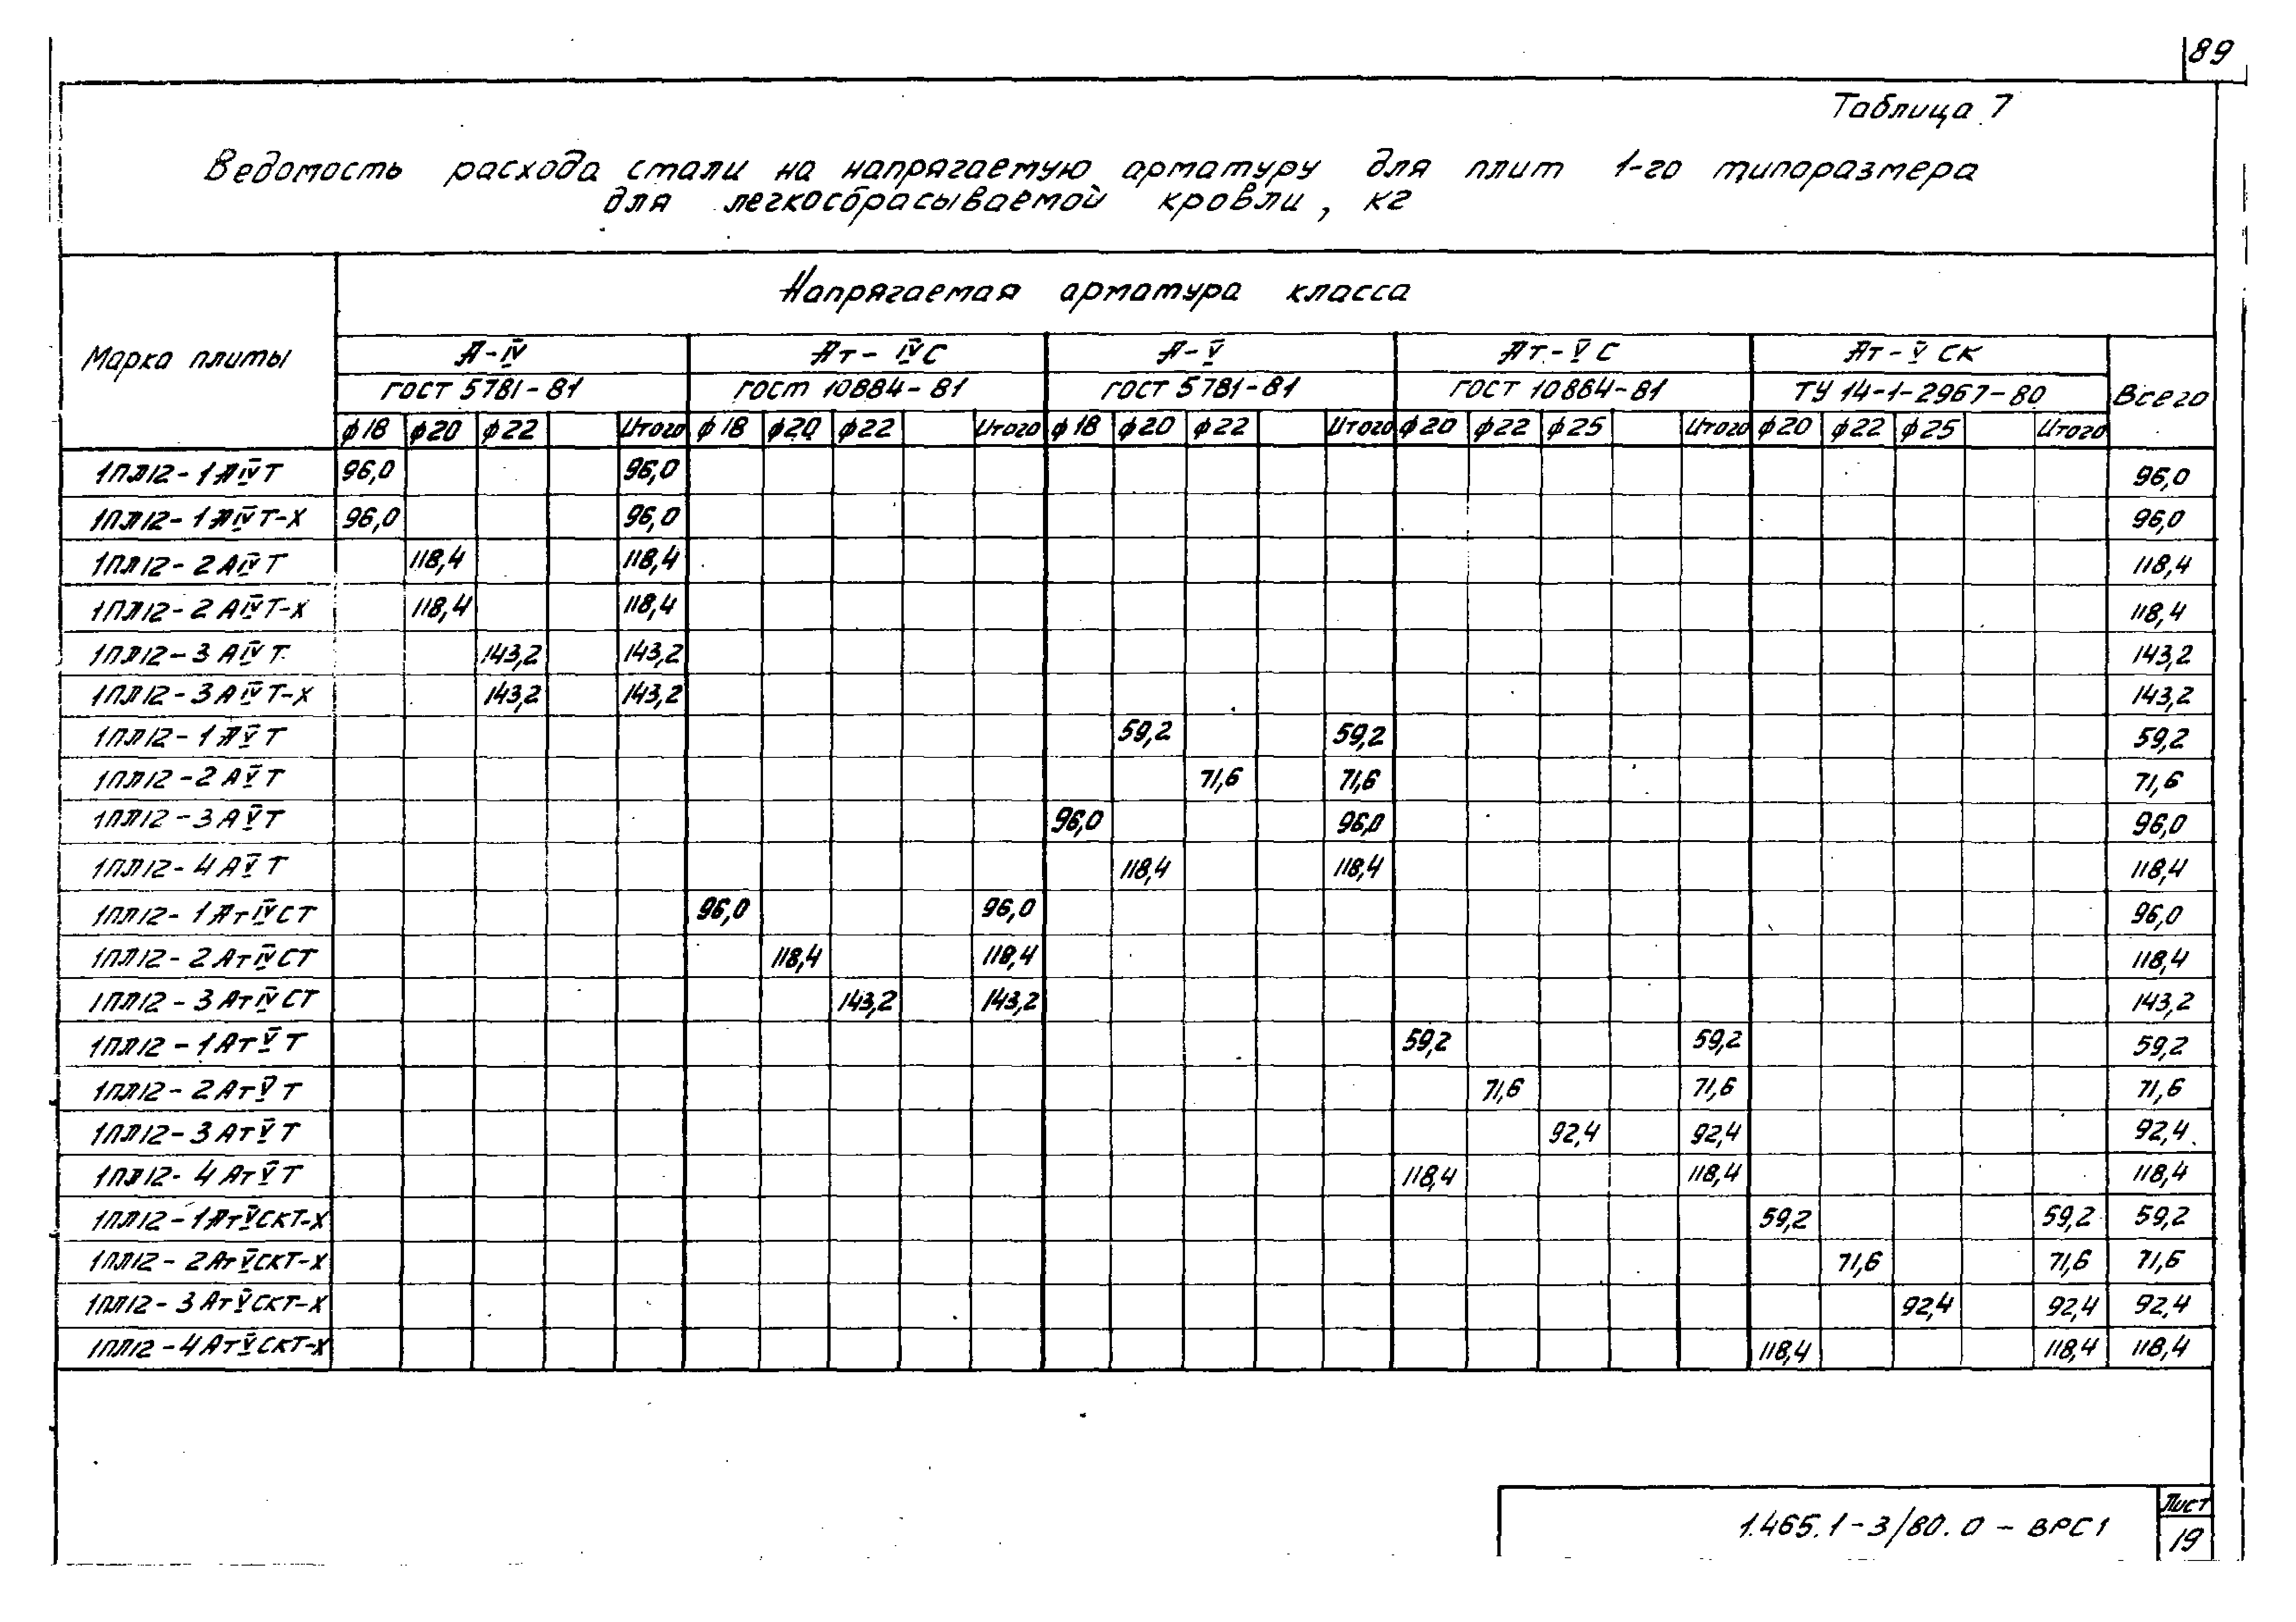 89
Таблица 7
Ведомость расхода стали на напрягаемую арматуру для плит 1-го типоразмера
для легкосбрасываемой кровли, кг
Марка плиты
Напрягаемая арматура класса
А-IV Ат-IVС А-V Ат-VС Ат-VСК
ГОСТ 5781-81 ГОСТ 10884-81 ГОСТ 5781-81 ГОСТ 10884-81 ТУ 14-1-2967-80 Всего
ф18 ф20 ф22 Итого ф18 ф20 ф22 Итого ф18 ф20 ф22 Итого ф20 ф22 ф25 Итого ф20 ф22 ф25 Итого
1ПЛ12-1АIVТ 96,0 96,0 96,0
1ПЛ12-1АIVТ-Х 96,0 96,0 96,0
1ПЛ12-2АIVТ 118,4 118,4 118,4
1ПЛ12-2АIVТ-Х 118,4 118,4 118,4
1ПЛ12-3АIVТ 143,2 143,2 143,2
1ПЛ12-3АIVТ-Х 143,2 143,2 143,2
1ПЛ12-1АVТ 59,2 59,2 59,2
1ПЛ12-2АVТ 71,6 71,6 71,6
1ПЛ12-3АVТ 96,0 96,0 96,0
1ПЛ12-4АVТ 118,4 118,4 118,4
1ПЛ12-1АтIVСТ 96,0 96,0 96,0
1ПЛ12-2АтIVСТ 118,4 118,4 118,4
1ПЛ12-3АтIVСТ 143,2 143,2 143,2
1ПЛ12-1АтVТ 59,2 59,2 59,2
1ПЛ12-2АтVТ 71,6 71,6 71,6
1ПЛ12-3АтVТ 92,4 92,4 92,4
1ПЛ12-4АтVТ 118,4 118,4 118,4
1ПЛ12-1АтVСКТ-Х 59,2 59,2 59,2
1ПЛ12-2АтVСКТ-Х 71,6 71,6 71,6
1ПЛ12-3АтVСКТ-Х 92,4 92,4 92,4
1ПЛ12-4АтVСКТ-Х 118,4 118,4 118,4
1.465.1-3/80.0-ВРС1
Лист
19